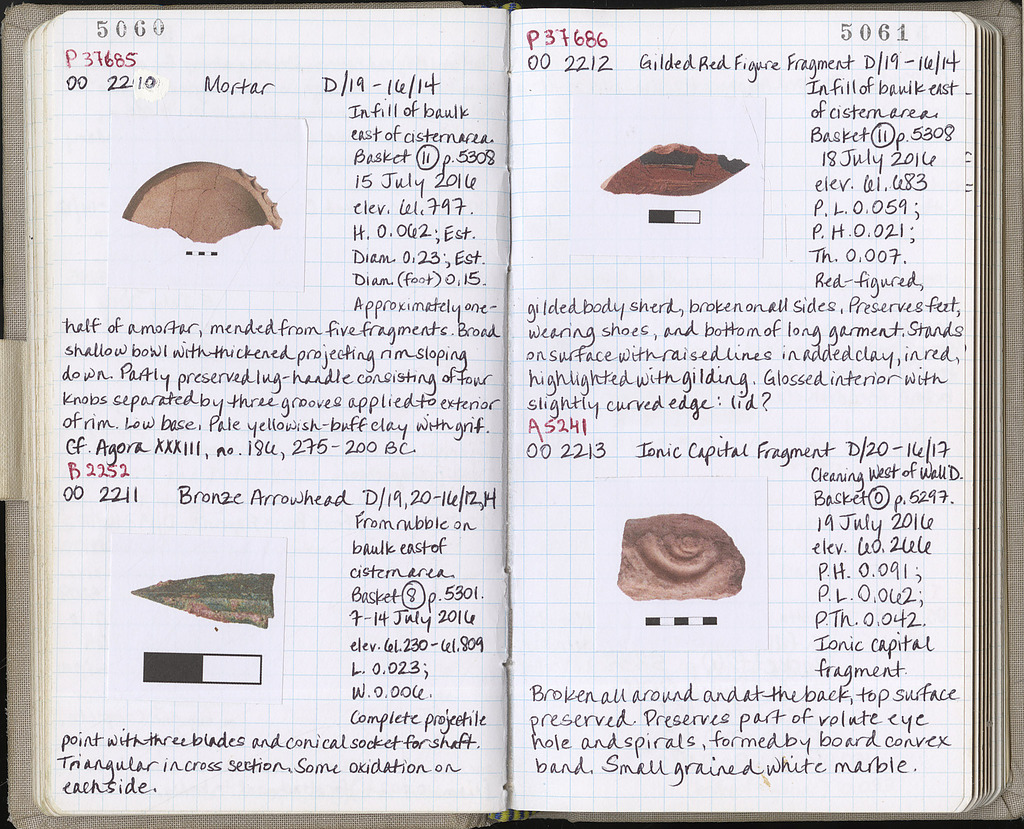 5060
P 37685
OO 2210 Mortar D/19-16/14
Infill of baulk
east of cistern area.
Basket (11) p. 5308
15 July 2016
elev. 61.797.
H. 0.062; Est.
Diam. 0.23; Est.
Diam. (foot) 0.15.
Approximately one-
half of a mortar, mended from five fragments. Broad
shallow bowl with thickened projecting rim sloping
down. Partly preserved lug-handle consisting of four
knobs separated by three grooves applied to exterior
of rim. Low base. Pale yellowish-buff clay with grit.
Cf. Agora XXXIII, no. 186, 275-200 BC.
B 2252
OO 2211 Bronze Arrowhead D/19,20-16/12,14
From rubble on
baulk east of
cistern area.
Basket (8) p. 5301.
7-14 July 2016
elev. 61.230-61.809
L. 0.023;
W. 0.006.
Complete projectile
point with three blades and conical socket for shaft.
Triangular in cross section. Some oxidation on
each side.
5061
P 37686
OO 2212 Gilded Red Figure Fragment D/19-16/14
Infill of baulk east
of cistern area.
Basket (11) p. 5308
18 July 2016
elev. 61.683
P. L. 0.059;
P. H. 0.021;
Th. 0.007.
Red-figured,
gilded body sherd, broken on all sides. Preserves feet,
wearing shoes, and bottom of long garment. Stands
on surface with raised lines in added clay, in red,
highlighted with gilding. Glossed interior with
slightly curved edge: lid?
A 5241
OO 2213 Ionic Capital Fragment D/20-16/17
Cleaning West of Wall D.
Basket (0) p. 5297.
19 July 2016
elev. 60.266
P.H. 0.091;
P.L. 0.062;
P.Th. 0.042.
Ionic capital
fragment.
Broken all around and at the back, top surface
preserved. Preserves part of volute eye
hole and spirals, formed by board convex
band. Small grained white marble.